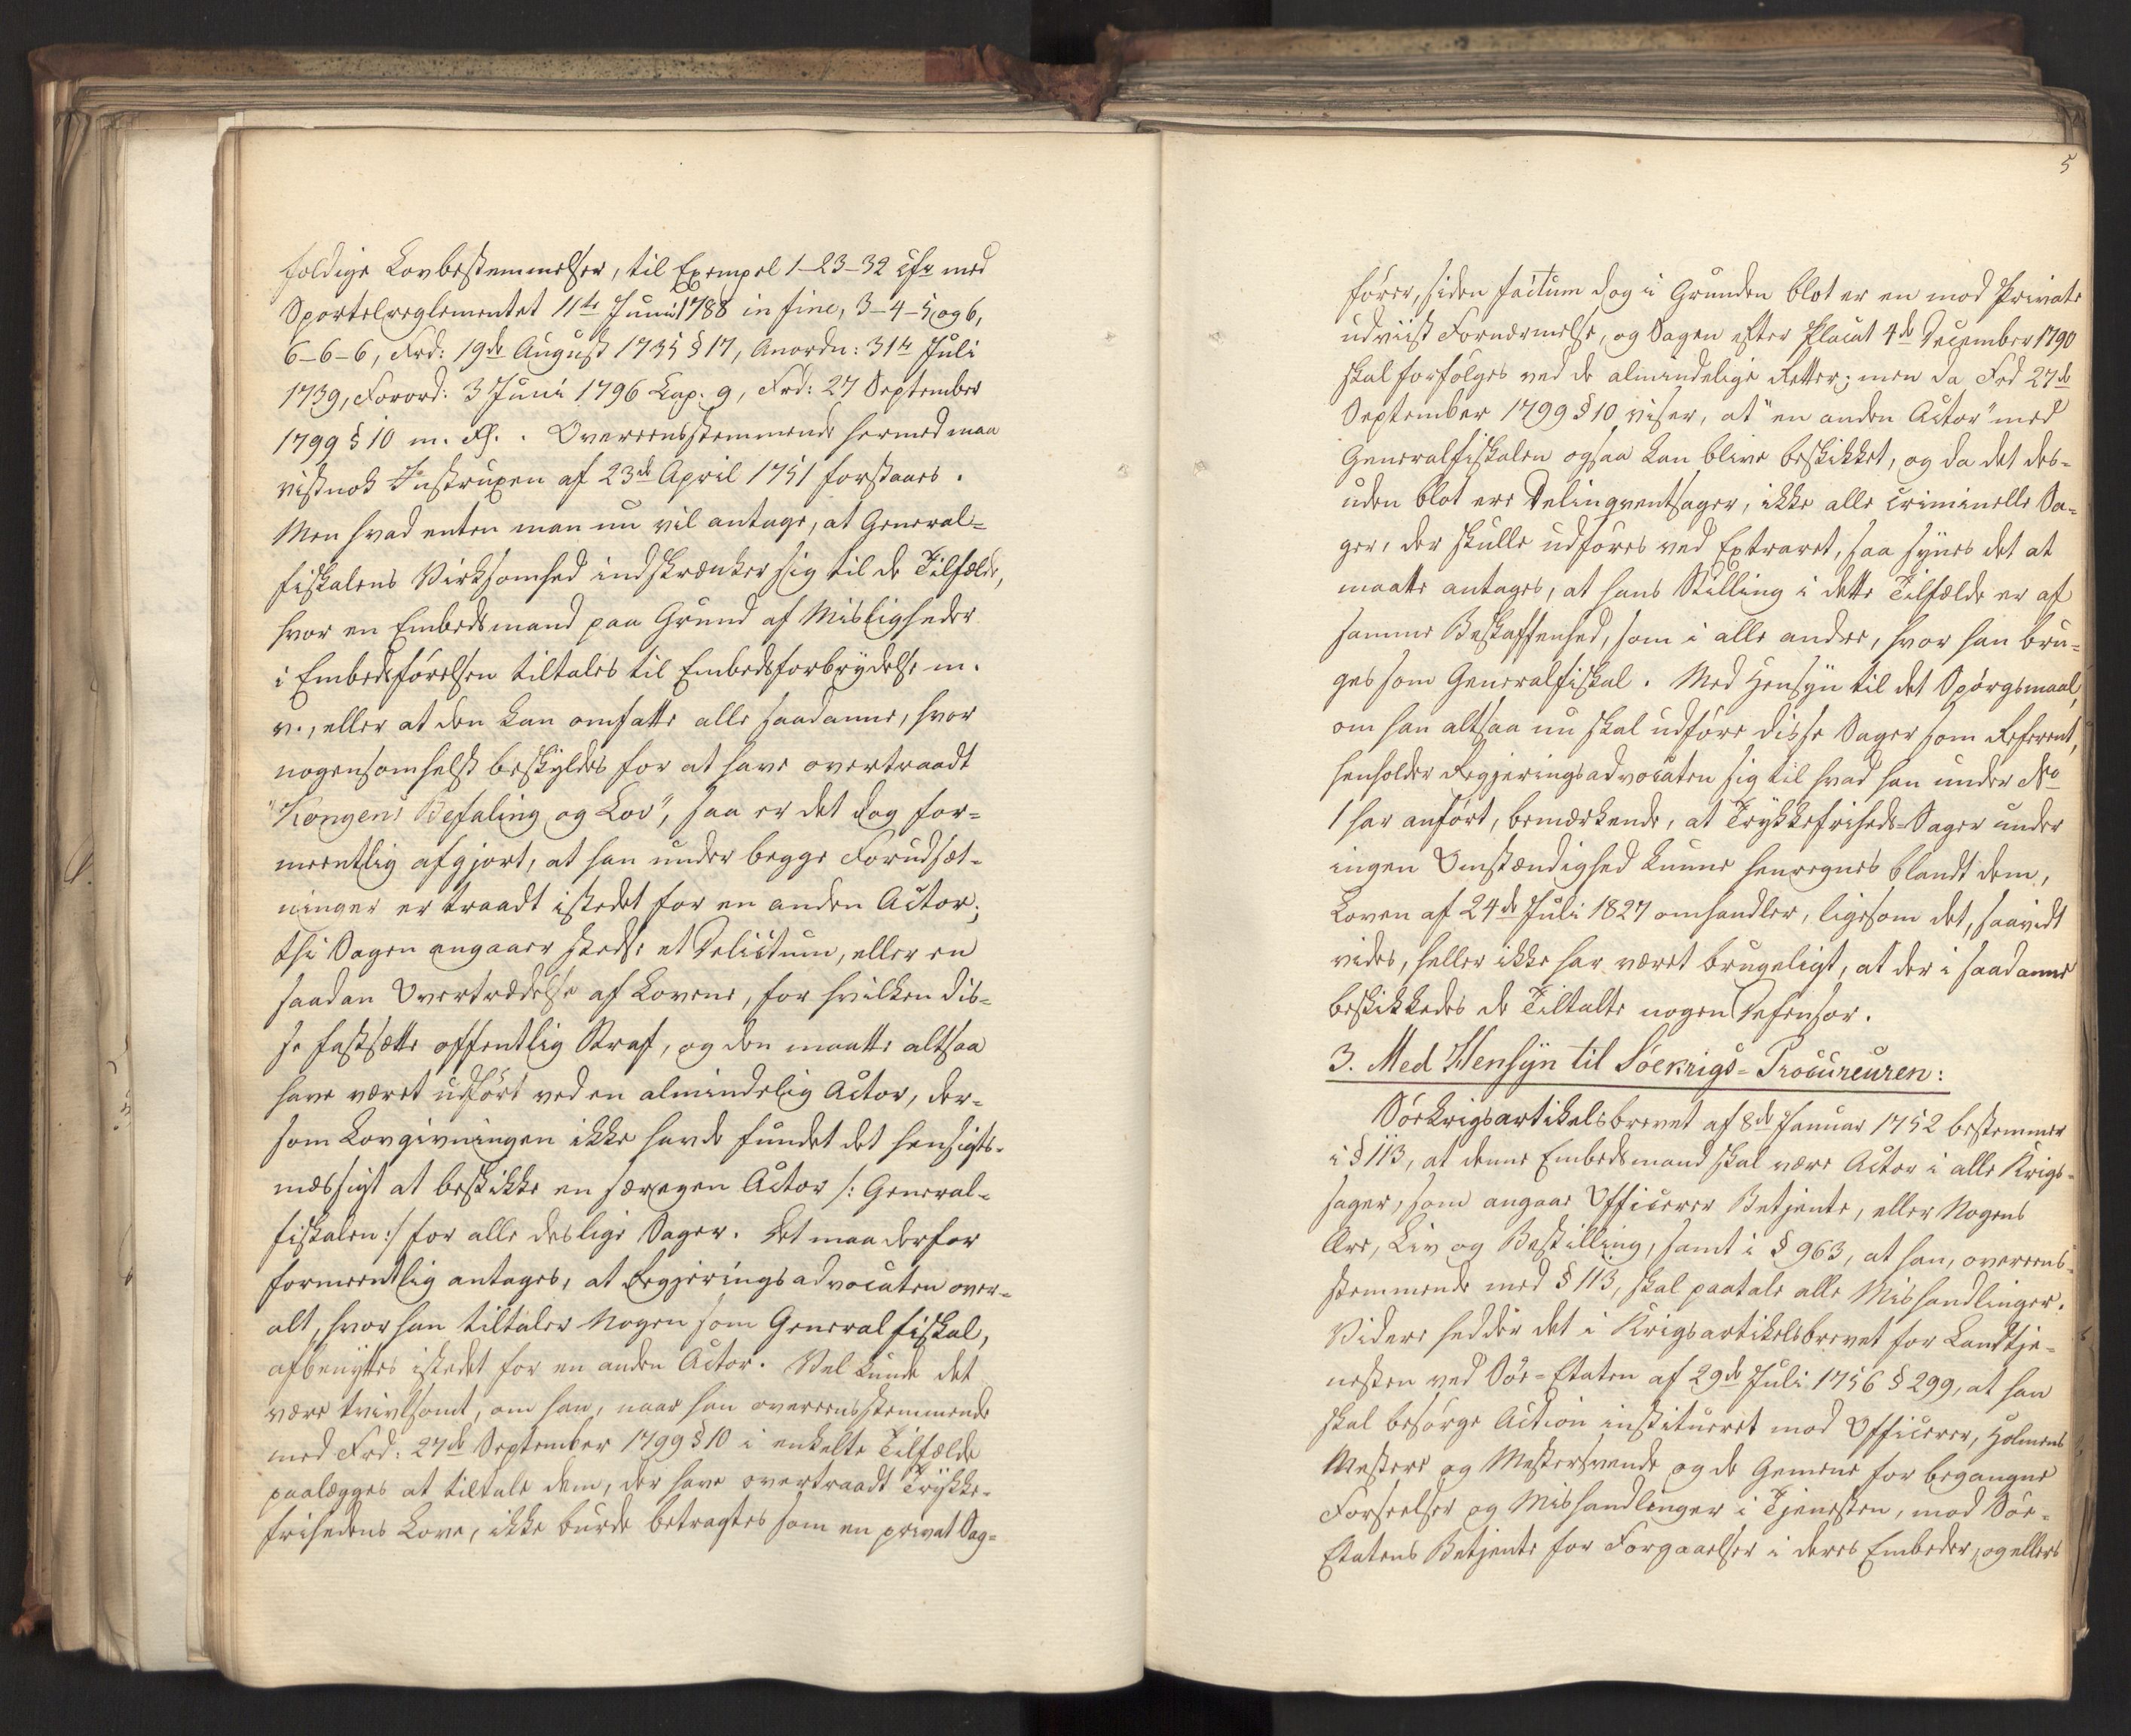 foldige Lovbestemmelser, til Exempel 1-23-32 cfr med
Sportelreglementet 11te Juni 1788 in fine, 3-4-5 og 6,
6-6-6, Frd: 19de August 1735 § 17, Anordn: 31te Juli
1739, Forord: 3 Juni 1796 Cap. 9, Frd: 27 September
1799 § 10 m. Fl. . Overeensstemmende hermed maa
vistnok Instruxen af 23de April 1751 forstaaes.
Men hvad enten man nu vil antage, at General=
fiskalens Virksomhed indskrænker sig til de Tilfælde,
hvor en Embedsmand paa Grund af Misligheder
i Embedsførelsen tiltales til Embedsforbrydelse m.
v., eller at den kan omfatte alle saadanne, hvor
nogensomhelst beskyldes for at have overtraadt
"Kongens Befaling og Lov", saa er det dog for=
meentlig afgjort, at han under begge Forudsæt=
ninger er traadt istedet for en anden Actor;
thi Sagen angaaer stedse et Delictum, eller en
saadan Overtrædelse af Lovene, for hvilken dis=
se fastsætte offentlig Straf, og den maatte altsaa
have været udført ved en almindelig Actor, der=
som Lovgivningen ikke havde fundet det hensigts=
mæssigt at beskikke en særegen Actor /: General=
fiskalen :/ for alle deslige Sager. Det maa derfor
formeentlig antages, at Regjeringsadvocaten over=
alt, hvor han tiltaler Nogen som Generalfiskal,
afbenyttes istedet for en anden Actor. Vel kunde det
være tvivlsomt, om han, naar han overeensstemmende
med Frd: 27de September 1799 § 10 i enkelte Tilfælde
paalægges at tiltale dem, der have overtraadt Trykke=
frihedens Love, ikke burde betragtes som en privat Sag=
5
fører, siden factum dog i Grunden blot er en mod Private
udviist Fornærmelse, og Sagen efter Placat 4de December 1790
skal forfølges ved de almindelige Retter; men da Frd 27de
September 1799 § 10 viser, at "en anden Actor" med
Generalfiskalen ogsaa kan blive beskikket, og da det des=
uden blot ere Delinqventsager, ikke alle criminelle Sa=
ger, der skulle udføres ved Extraret, saa synes det at
maatte antages, at hans Stilling i dette Tilfælde er af
samme Beskaffenhed, som i alle andre, hvor han bru=
ges som Generalfiskal. Med Hensyn til det Spørgsmaal,
om han altsaa nu skal udføre disse Sager som Referent,
henholder Regjeringsadvocaten sig til hvad han under No
1 har anført, bemærkende, at Trykkefriheds-Sager under
ingen Omstændighed kunne henregnes blandt dem,
Loven af 24de Juli 1827 omhandler, ligesom det, saavidt
vides, heller ikke har været brugeligt, at der i saadanne
beskikkedes de Tiltalte nogen Defensor.
3. Med Hensyn til Søekrigs=Procureuren:
Søekrigsartikelsbrevet af 8de Januar 1752 bestemmer
i § 113, at denne Embedsmand skal være Actor i alle Krigs=
sager, som angaae Officerer Betjente, eller Nogens
Ære, Liv og Bestilling, samt i § 963, at han, overeens=
stemmende med § 113, skal paatale alle Mishandlinger.
Videre hedder det i Krigsartikelsbrevet for Landtje=
nesten ved Søe=Etaten af 29de Juli 1756 § 299, at han
skal besørge Action institueret mod Officerer, Holmens
Mestere og Mestersvende og de Gemene for begangne
Forseelser og Mishandlinger i Tjenesten, mod Søe=
Etatens Betjente for Forgaaelser i deres Embeder, og ellers